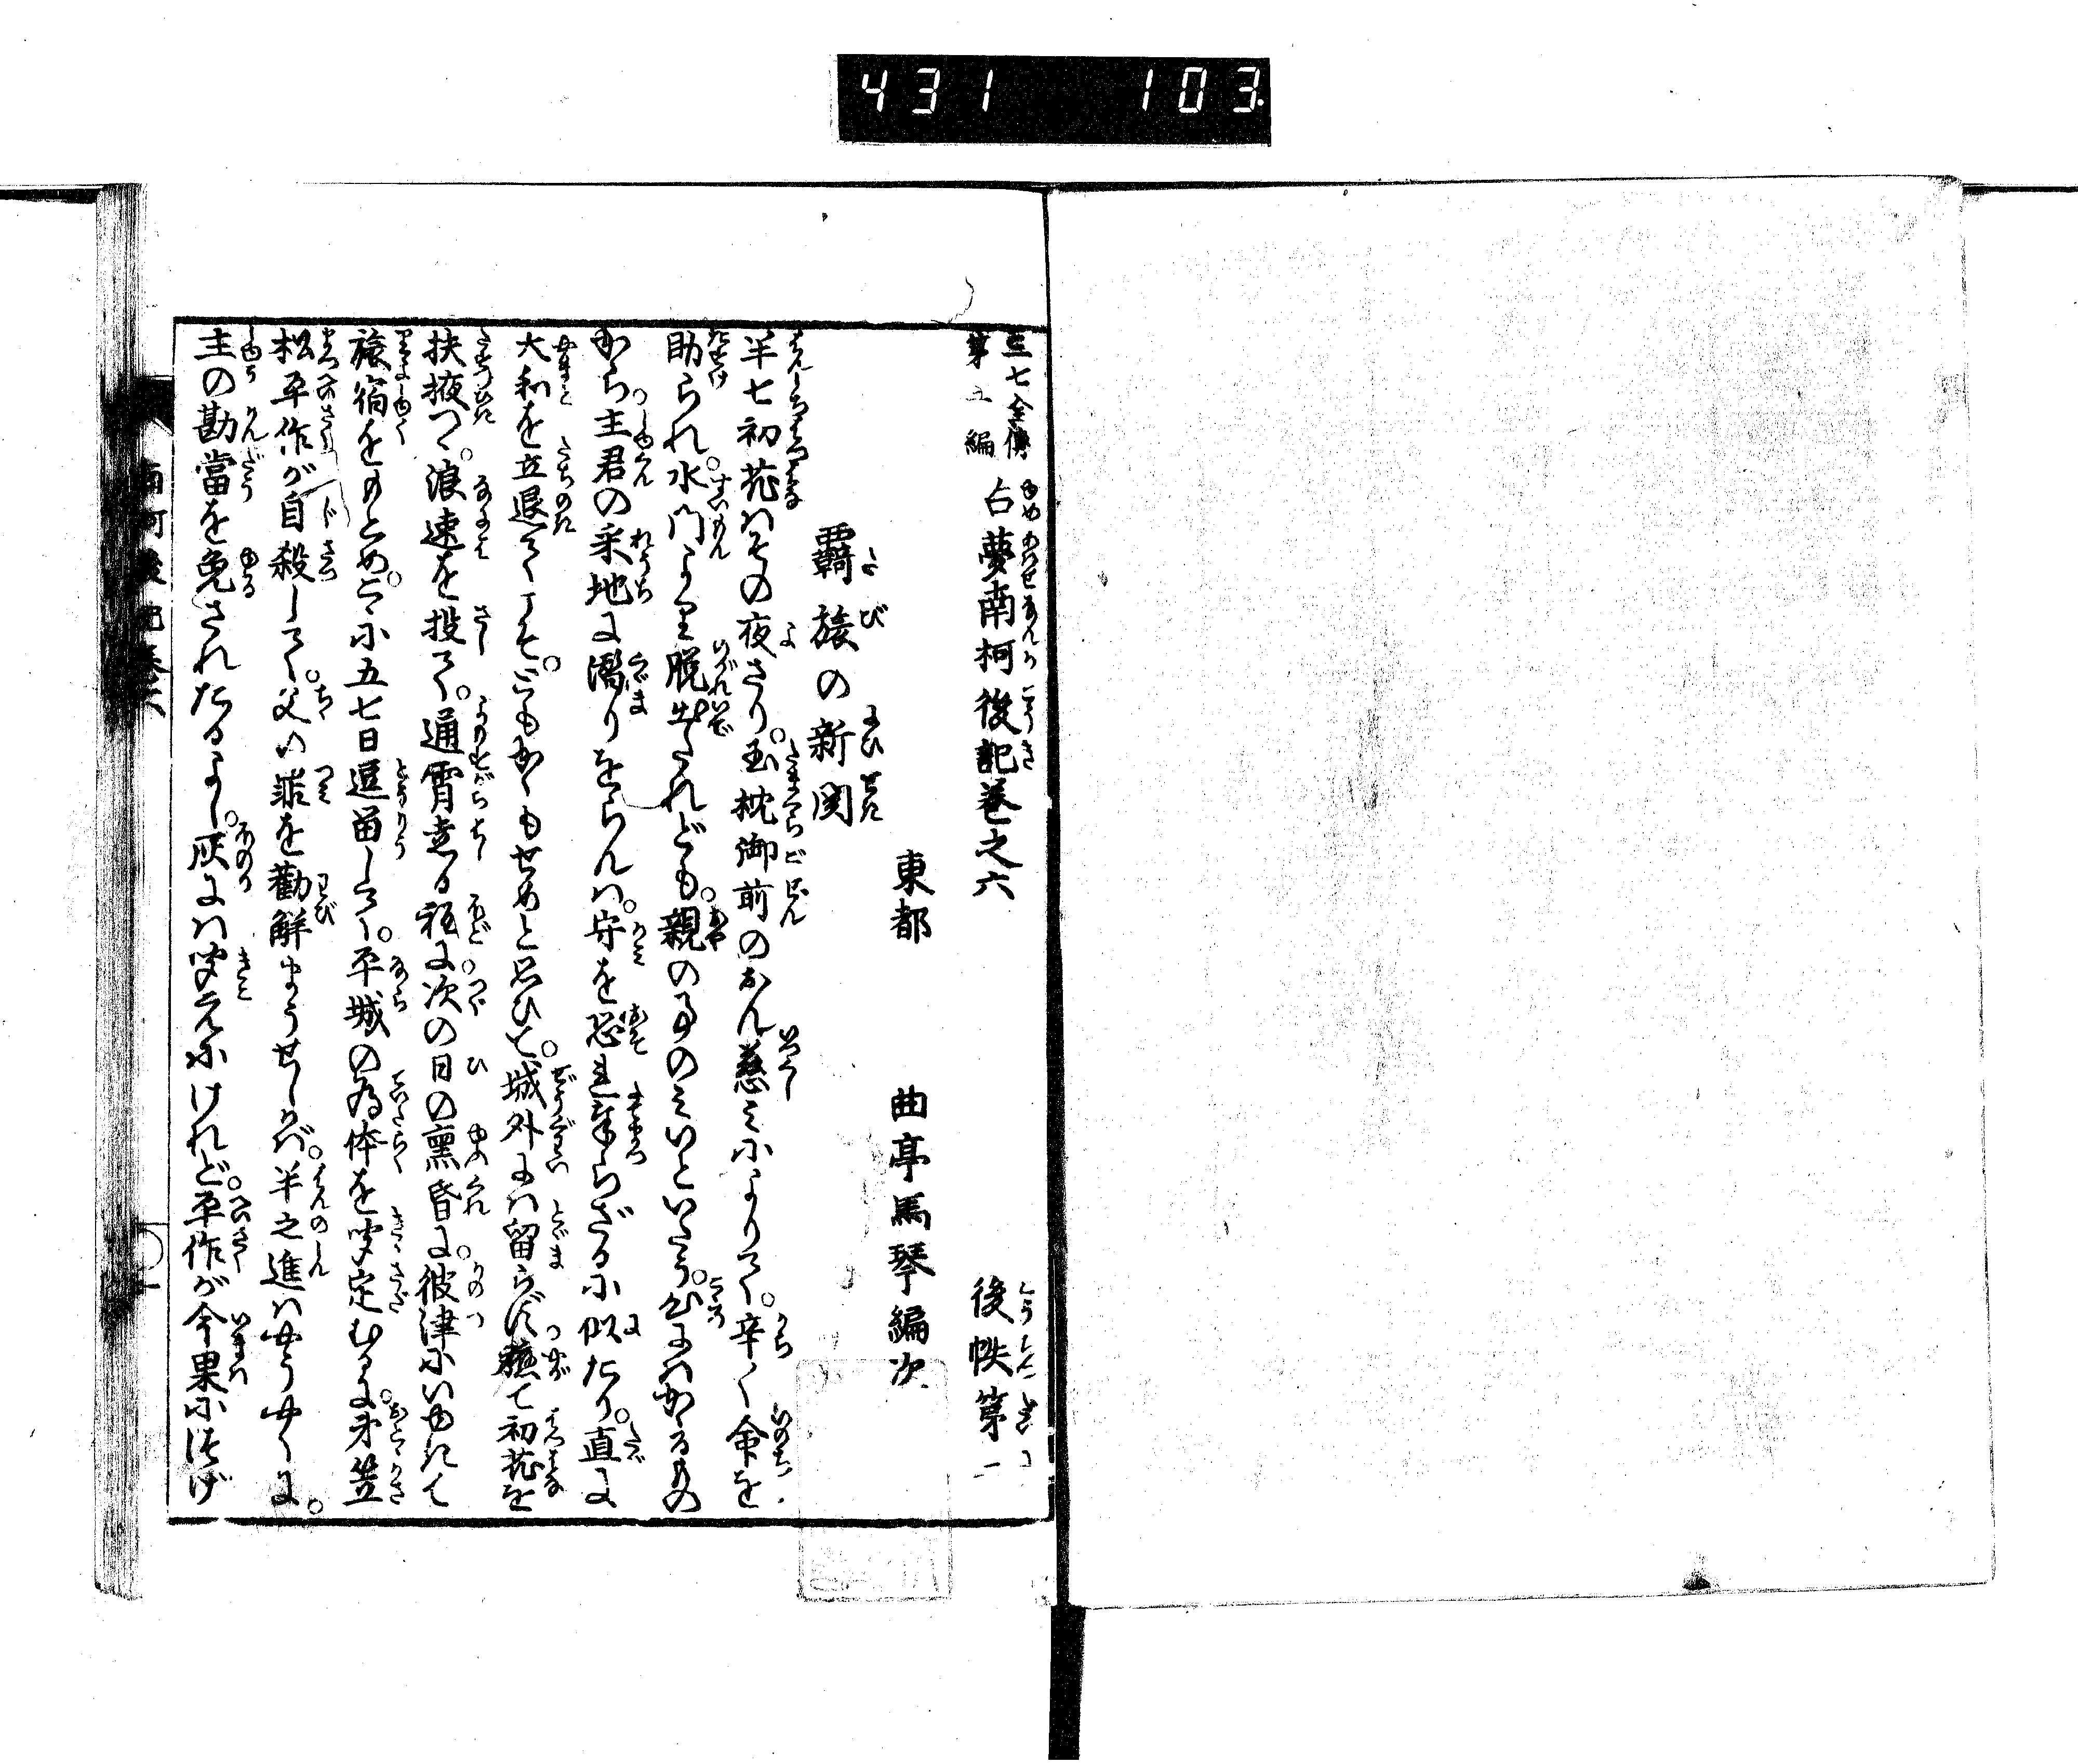 431 103
三七全傳
第二編
占夢南柯後記巻之六
後帙第一
東都 曲亭馬琴編次
羇旅の新関
半七初花はその夜さり。玉枕御前のおん慈みによりて。辛く命を
助られ。水門より脱出たれども。親の事のみいといたう。心にかゝるもの
から主君の采地に濳りをらんは。守を恐れ奉らざるに似たり。直に
大和を立退てこそ。ともかくもせめと思ひて。城外には留らず。軈て初花を
扶掖つゝ。浪速を投て。通宵走る程に。次の日の黄昏に。彼津にいゆきて
旅宿をもとめ。こゝに五七日逗留して。平城の為体を聞定むるに。赤根
松平作が自殺して。父の罪を勸解まうせしかば。半之進はやうやくに。
主の勘當を免されたるよし。灰には聞えにけれど。平作が今果に告げ